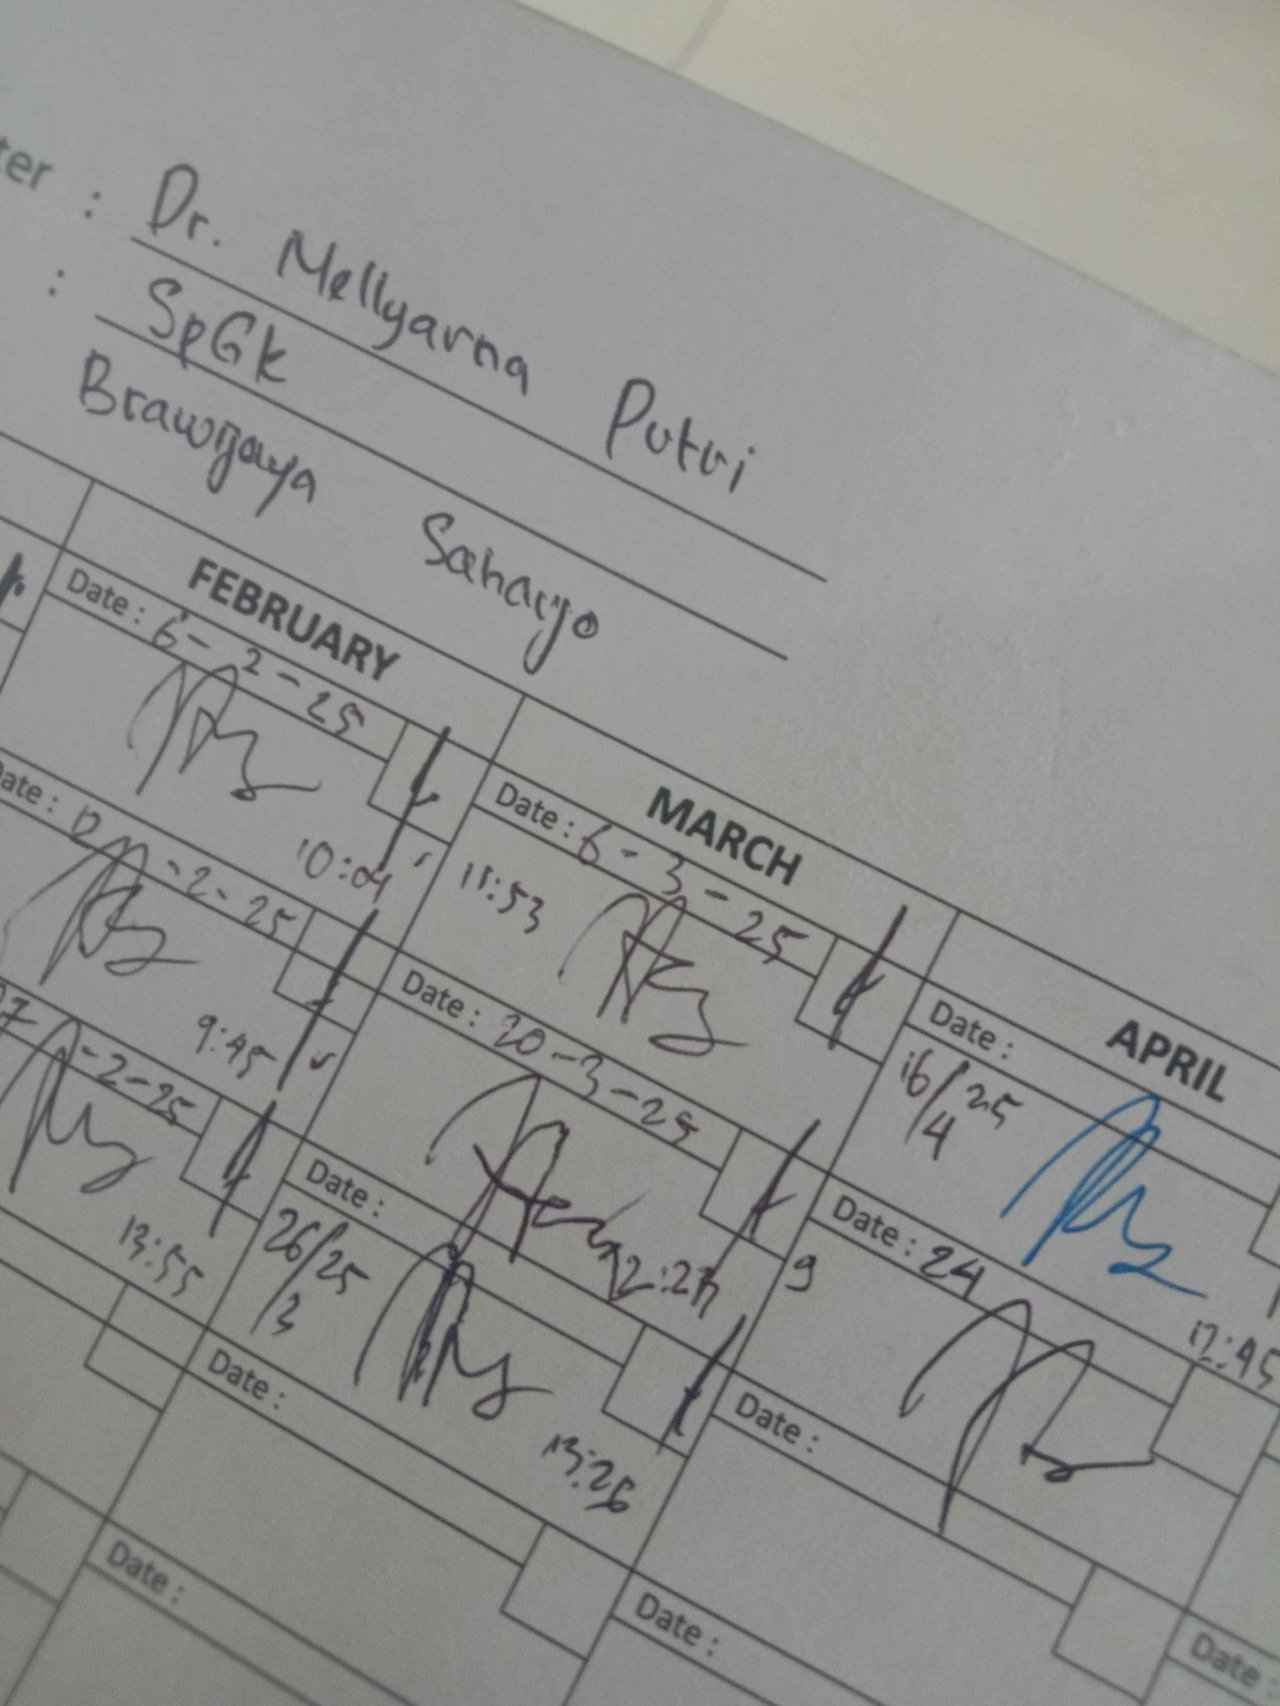 ter : Dr. Mellyarna Putri
: SpGk
Brawijaya Saharjo
FEBRUARY
Date : 6-2-25
10:04
Date : 12-2-25
9:45
27-2-25
13:55
MARCH
Date : 6-3-25
11:53
Date : 20-3-25
12:27
Date :
26/3/25
13:26
Date :
Date :
APRIL
Date :
16/4/25
12:45
Date : 24
Date :
Date :
Date :